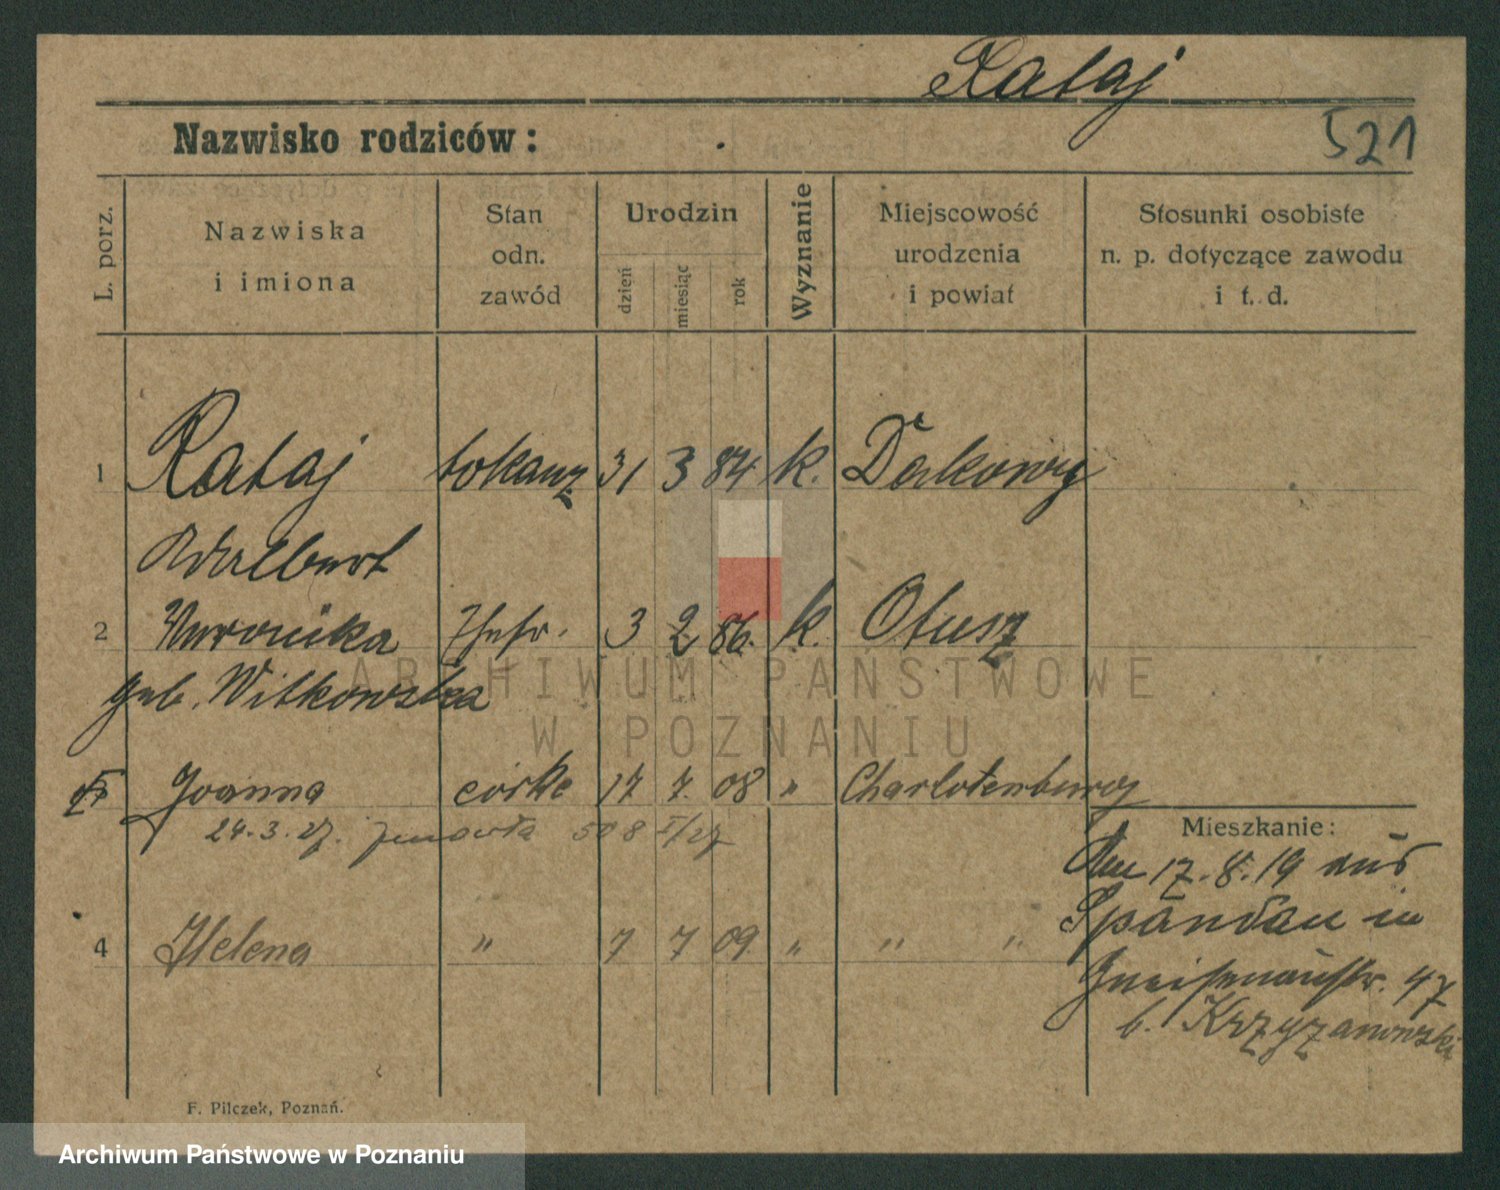 Rataj
Nazwisko rodziców:
521
L. porz.
Nazwiska
i imiona
Stan
odn.
zawód
Urodzin
dzień
miesiąc
rok
Wyznanie
Miejscowość
urodzenia
i powiat
Stosunki osobiste
n. p. dotyczące zawodu
i t. d.
1 Rataj tokarz 31 3 84. k. Dakowy
Adalbert
2 Weronika Ehefr. 3 2 86. k. Otusz
geb. Witkowska
Joanna córka 17 7. 08 " Charlotenburg
24.3.27. 508 I/27
4 Helena " 7 7 09. " " "
Mieszkanie:
Am 17.8.19 aus
Spandau in
Gneisenaustr. 47
b. Krzyżanowski
F. Pilczek, Poznań.
ARCHIWUM PAŃSTWOWE
W POZNANIU
Archiwum Państwowe w Poznaniu